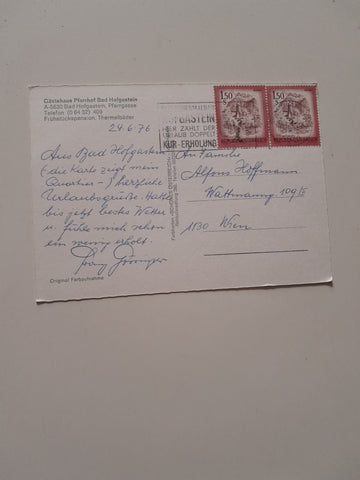 Gästehaus Pfarrhof Bad Hofgastein
A-5630 Bad Hofgastein, Pfarrgasse
Telefon (0 64 32) 409
Frühstückspension, Thermalbäder
24.6.76
Aus Bad Hofgastein
(die Karte zeigt mein
Quartier –) herzliche
Urlaubsgrüße. Hatte
bis jetzt bestes Wetter
u. fühle mich schon
ein wenig erholt.
Original Farbaufnahme
HIER ZÄHLT DER
URLAUB DOPPELT
KUR-ERHOLUNG
1.50
1.50
An Familie
Alfons Hoffmann
1130 Wien